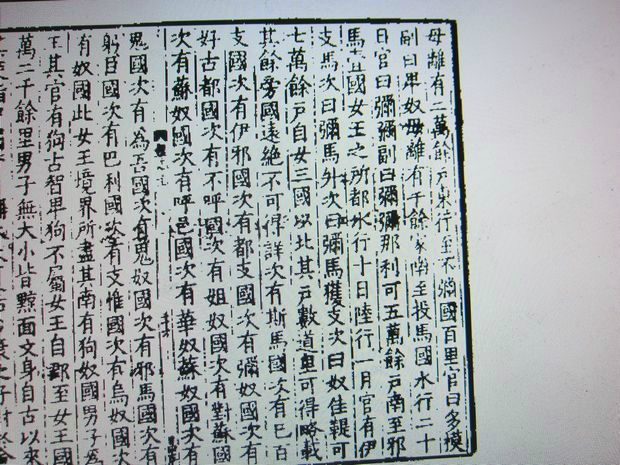 母離有二萬餘戶東行至不彌國百里官曰多模
副曰卑奴母離有千餘家南至投馬國水行二十
日官曰彌彌副曰彌彌那利可五萬餘戶南至邪
馬壹國女王之所都水行十日陸行一月官有伊
支馬次曰彌馬升次曰彌馬獲支次曰奴佳鞮可
七萬餘戶自女王國以北其戶數道里可得略載
其餘旁國遠絕不可得詳次有斯馬國次有巳百
支國次有伊邪國次有都支國次有彌奴國次有
好古都國次有不呼國次有姐奴國次有對蘇國
次有蘇奴國次有呼邑國次有華奴蘇奴國次有
鬼國次有為吾國次有鬼奴國次有邪馬國次有
躬臣國次有巴利國次有支惟國次有烏奴國次
有奴國此女王境界所盡其南有狗奴國男子為
王其官有狗古智卑狗不屬女王自郡至女王國
萬二千餘里男子無大小皆黥面文身自古以來